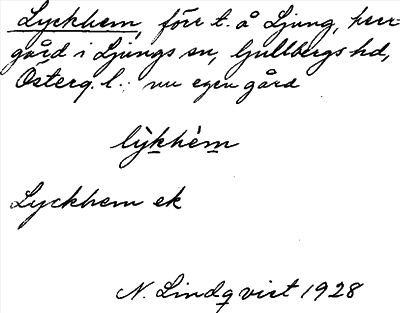 Lyckhem, förr t. å Ljung, herr-
gård i Ljungs sn, Gullbergs hd,
Österg. l.; nu egen gård
lỳkhèm
Lyckhem ek
N. Lindqvist 1928